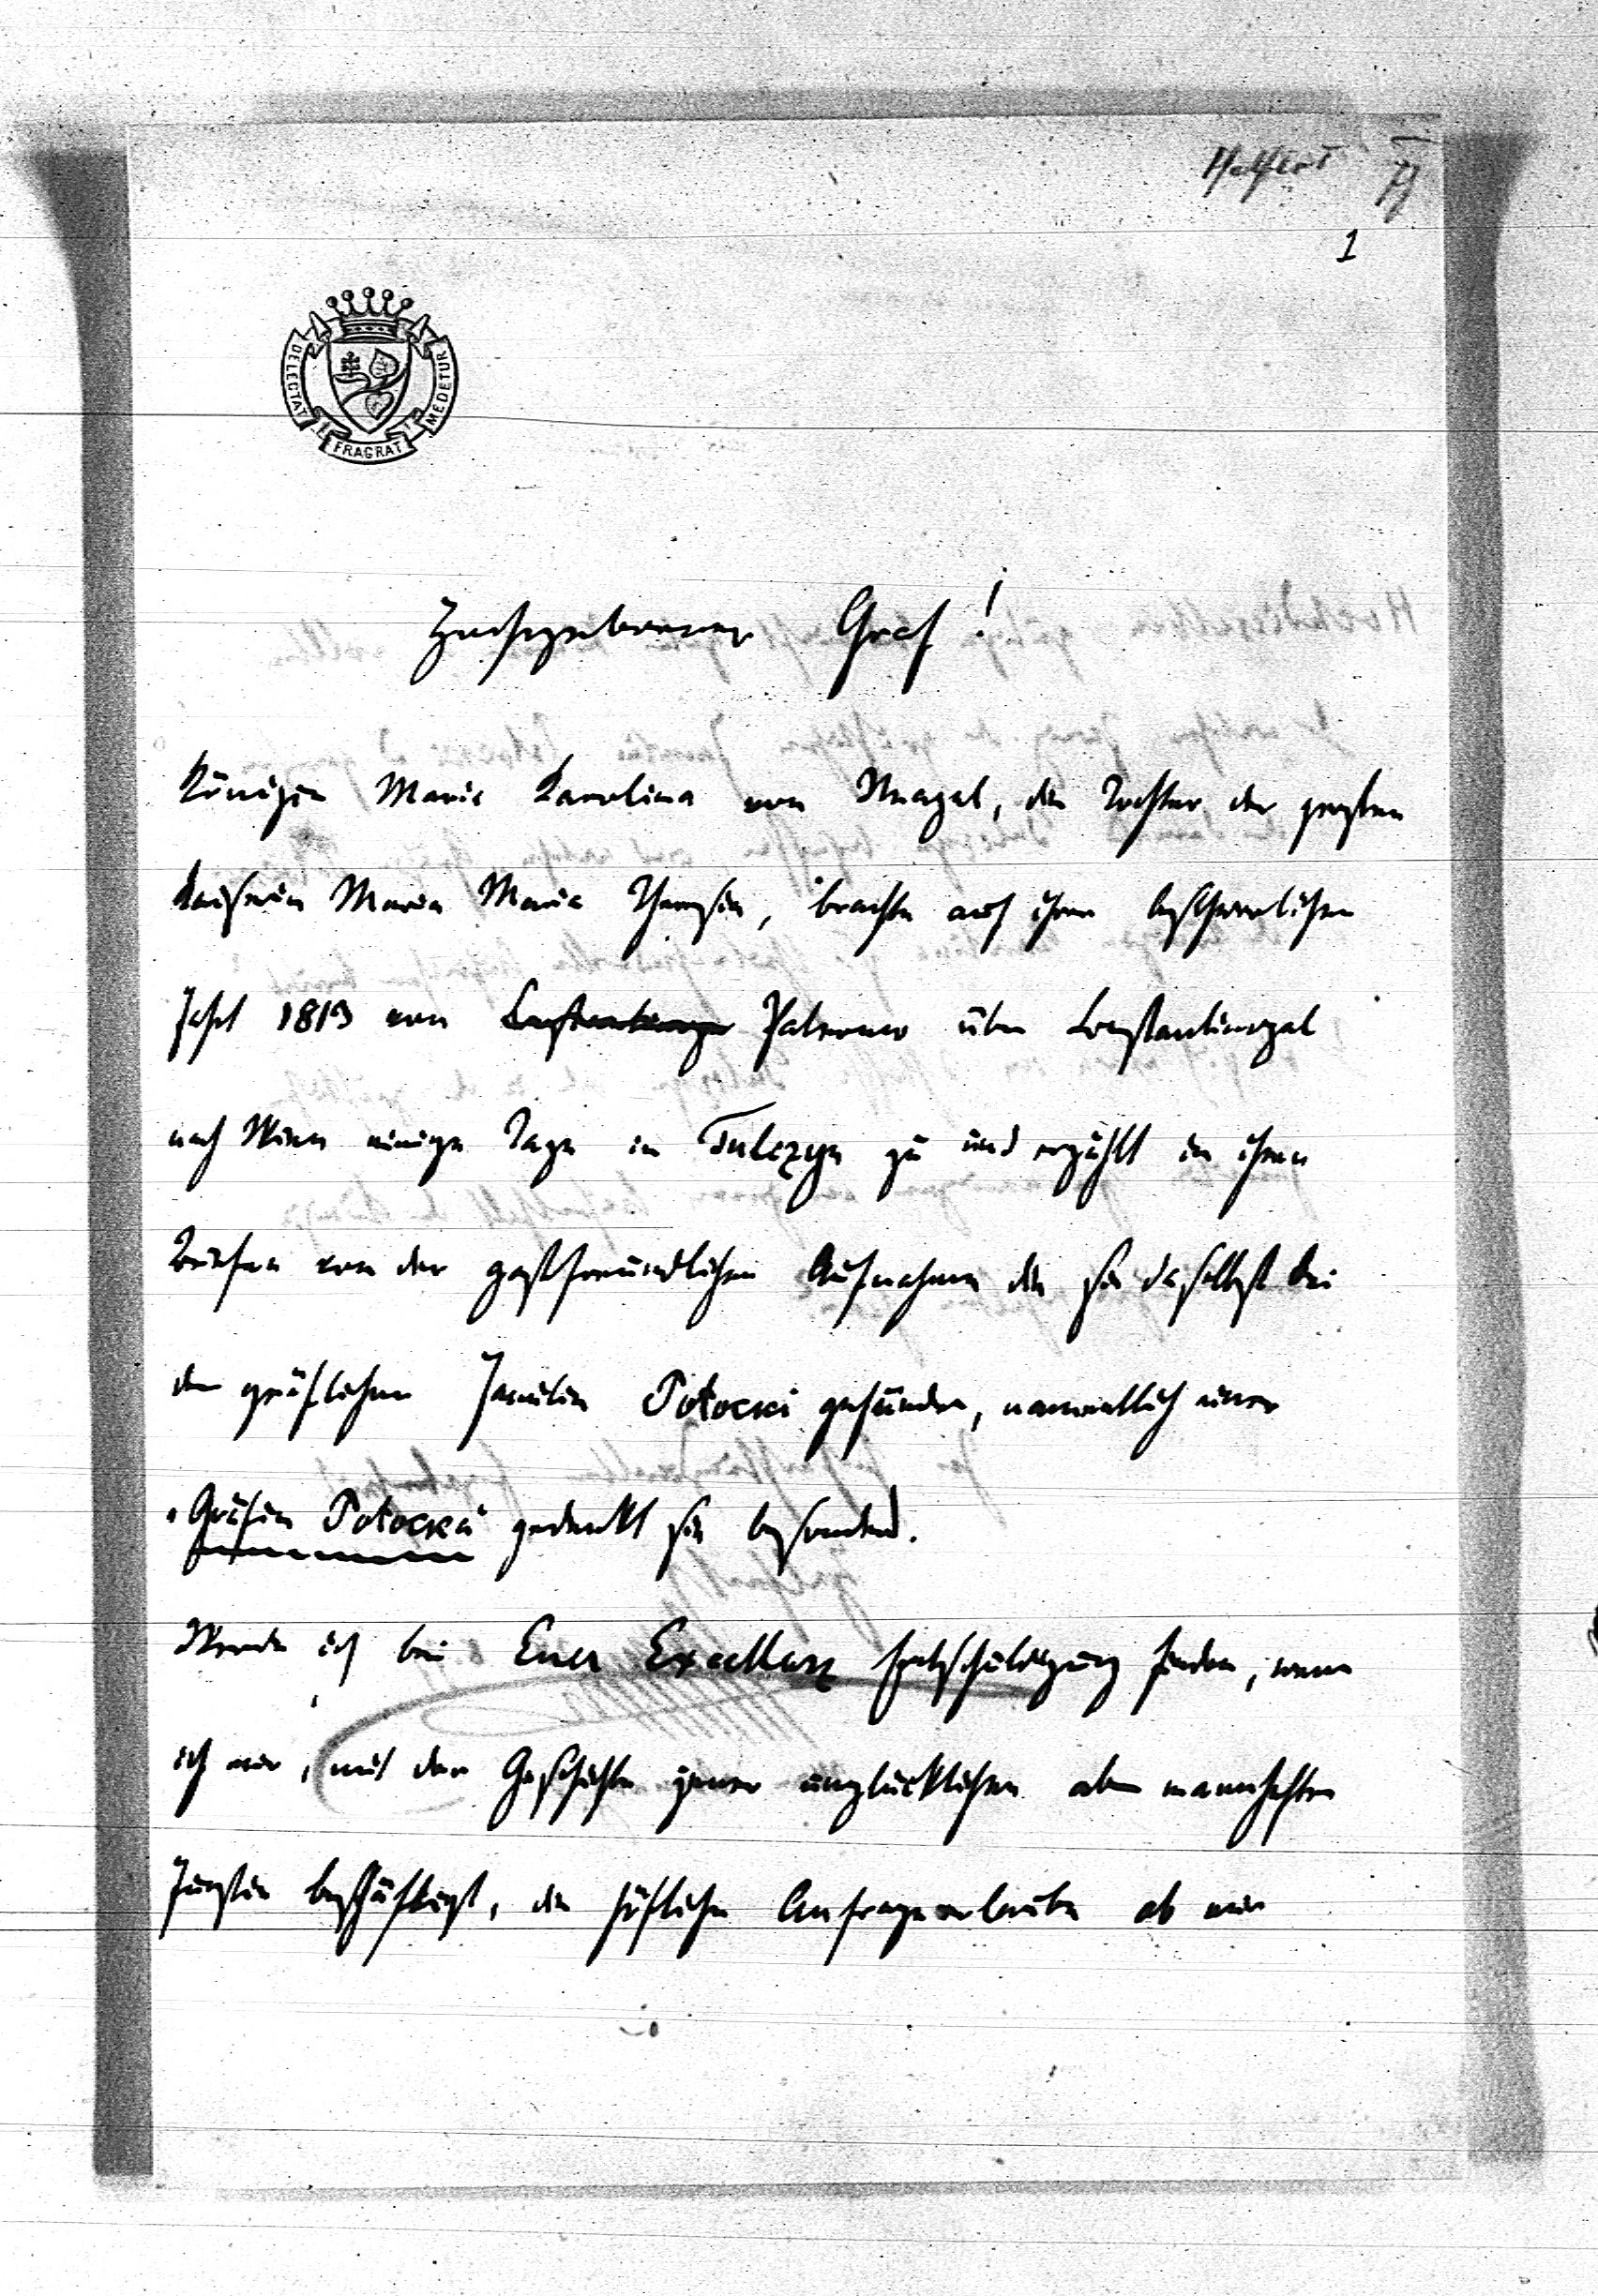 Helfert
1
DELECTAT FRAGRAT MEDETUR
Hochgeborener Graf!
Königin Maria Karolina von Neapel, die Tochter der großen
Kaiserin Maria Maria Theresia, brachte auf ihrer beschwerlichen
1813 von Palermo über Constantinopel
nach Wien einige Tage in Tulczyn zu und erzählt in ihren
Briefen von der gastfreundlichen Aufnahme die sie daselbst bei
der gräflichen Familie Potocki gefunden, namentlich einer
Gräfin Potocka gedenkt sie besonders.
Werde ich bei Euer Excellenz Entschuldigung finden, wenn
ich mir, mit der Geschichte jener unglücklichen aber mannhaften
Fürstin beschäftigt, die höfliche Anfrage erlaube ob mir